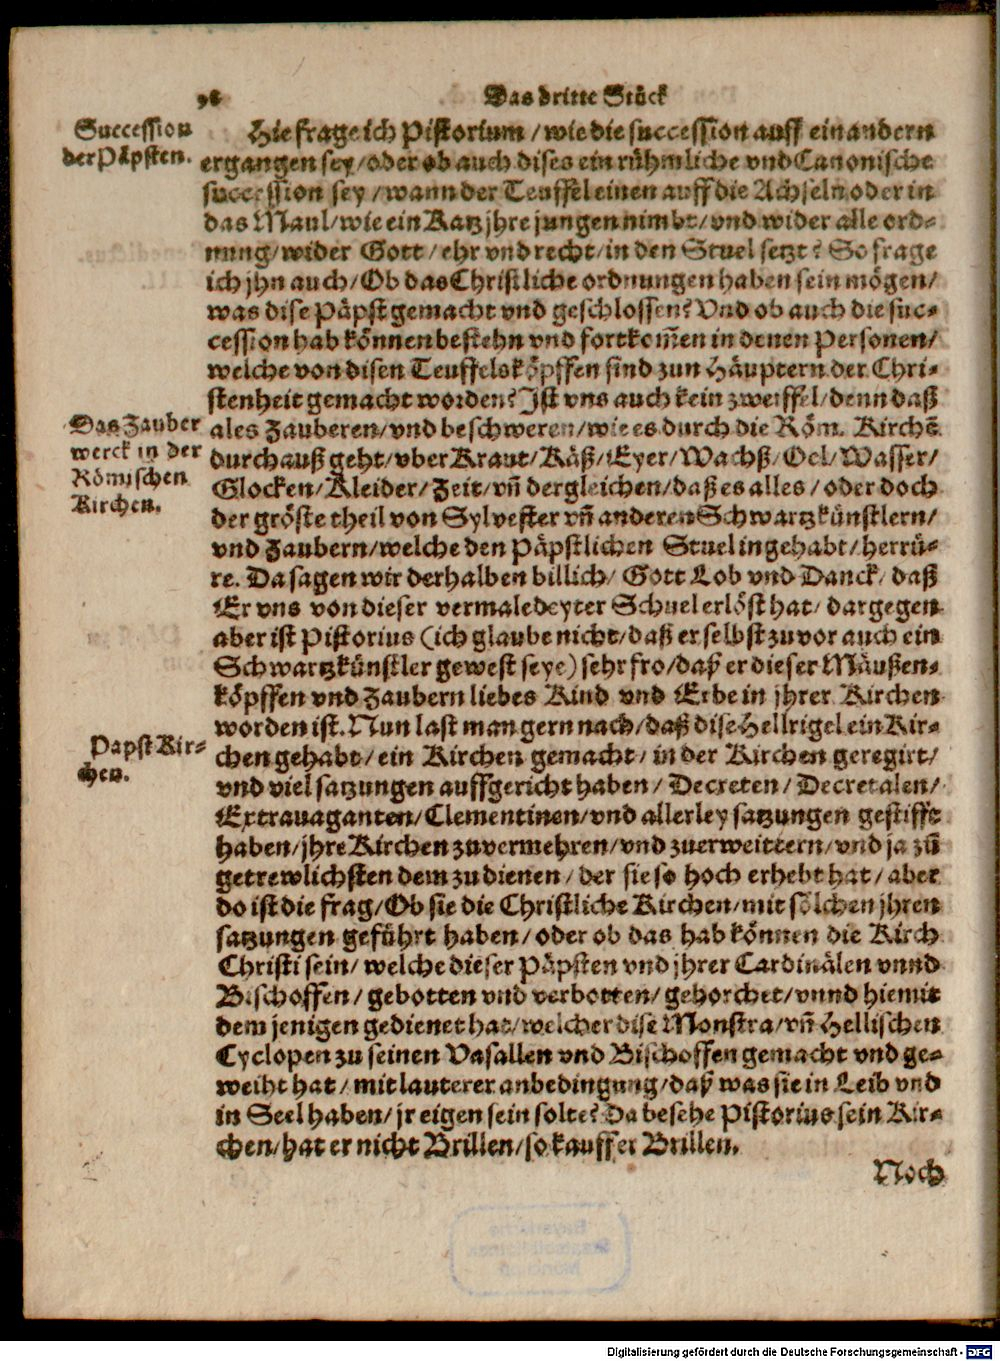 Das dritte Stück
Succession
der Päpsten.
Hie frage ich Pistorium / wie die succession auff ein andern
ergangen sey / oder ob auch dises ein rühmliche vnd Canonische
succession sey / wann der Teuffel einen auff die Achseln oder in
das Maul / wie ein Katz jhre jungen nimbt / vnd wider alle ord-
nung / wider Gott / ehr vnd recht / in den Stuel setzt? So frage
ich jhn auch / Ob das Christliche ordnungen haben sein mögen /
was dise Päpst gemacht vnd geschlossen? Vnd ob auch die suc-
cession hab können bestehn vnd fortkom̃en in denen Personen /
welche von disen Teuffelsköpffen sind zun Häuptern der Chri-
stenheit gemacht worden? Ist vns auch kein zweiffel / denn daß
Das Zauber
werck in der
Römischen
Kirchen.
ales Zauberen / vnd beschweren / wie es durch die Röm. Kirchẽ
durchauß geht / vber Kraut / Käß / Eyer / Wachß / Oel / Wasser /
Glocken / Kleider / Zeit / vñ dergleichen / daß es alles / oder doch
der gröste theil von Sylvester vñ anderen Schwartzkünstlern /
vnd Zaubern / welche den Päpstlichen Stuel ingehabt / herrü-
re. Da sagen wir derhalben billich / Gott Lob vnd Danck / daß
Er vns von dieser vermaledeyter Schuel erlöst hat / dargegen
aber ist Pistorius (ich glaube nicht / daß er selbst zuvor auch ein
Schwartzkünstler gewest seye) sehr fro / daß er dieser Mäußen-
köpffen vnd Zaubern liebes Kind vnd Erbe in jhrer Kirchen
worden ist. Nun last man gern nach / daß dise Hellrigel ein Kir-
Papst Kir-
chen.
chen gehabt / ein Kirchen gemacht / in der Kirchen geregirt /
vnd viel satzungen auffgericht haben / Decreten / Decretalen /
Extrauaganten / Clementinen / vnd allerley satzungen gestifft
haben / jhre Kirchen zuvermehren / vnd zuerweittern / vnd ja zũ
getrewlichsten dem zu dienen / der sie so hoch erhebt hat / aber
do ist die frag / Ob sie die Christliche Kirchen / mit sölchen jhren
satzungen geführt haben / oder ob das hab können die Kirch
Christi sein / welche dieser Päpsten vnd jhrer Cardinälen vnnd
Bischoffen / gebotten vnd verbotten / gehorchet / vnnd hiemit
dem jenigen gedienet hat / welcher dise Monstra / vñ Hellischen
Cyclopen zu seinen Vasallen vnd Bischoffen gemacht vnd ge-
weiht hat / mit lauterer anbedingung / daß was sie in Leib vnd
in Seel haben / jr eigen sein solte? Da besehe Pistorius sein Kir-
chen / hat er nicht Brillen / so kauff er Brillen.
Noch
Bayerische
Staatsbibliothek
München
Digitalisierung gefördert durch die Deutsche Forschungsgemeinschaft - DFG